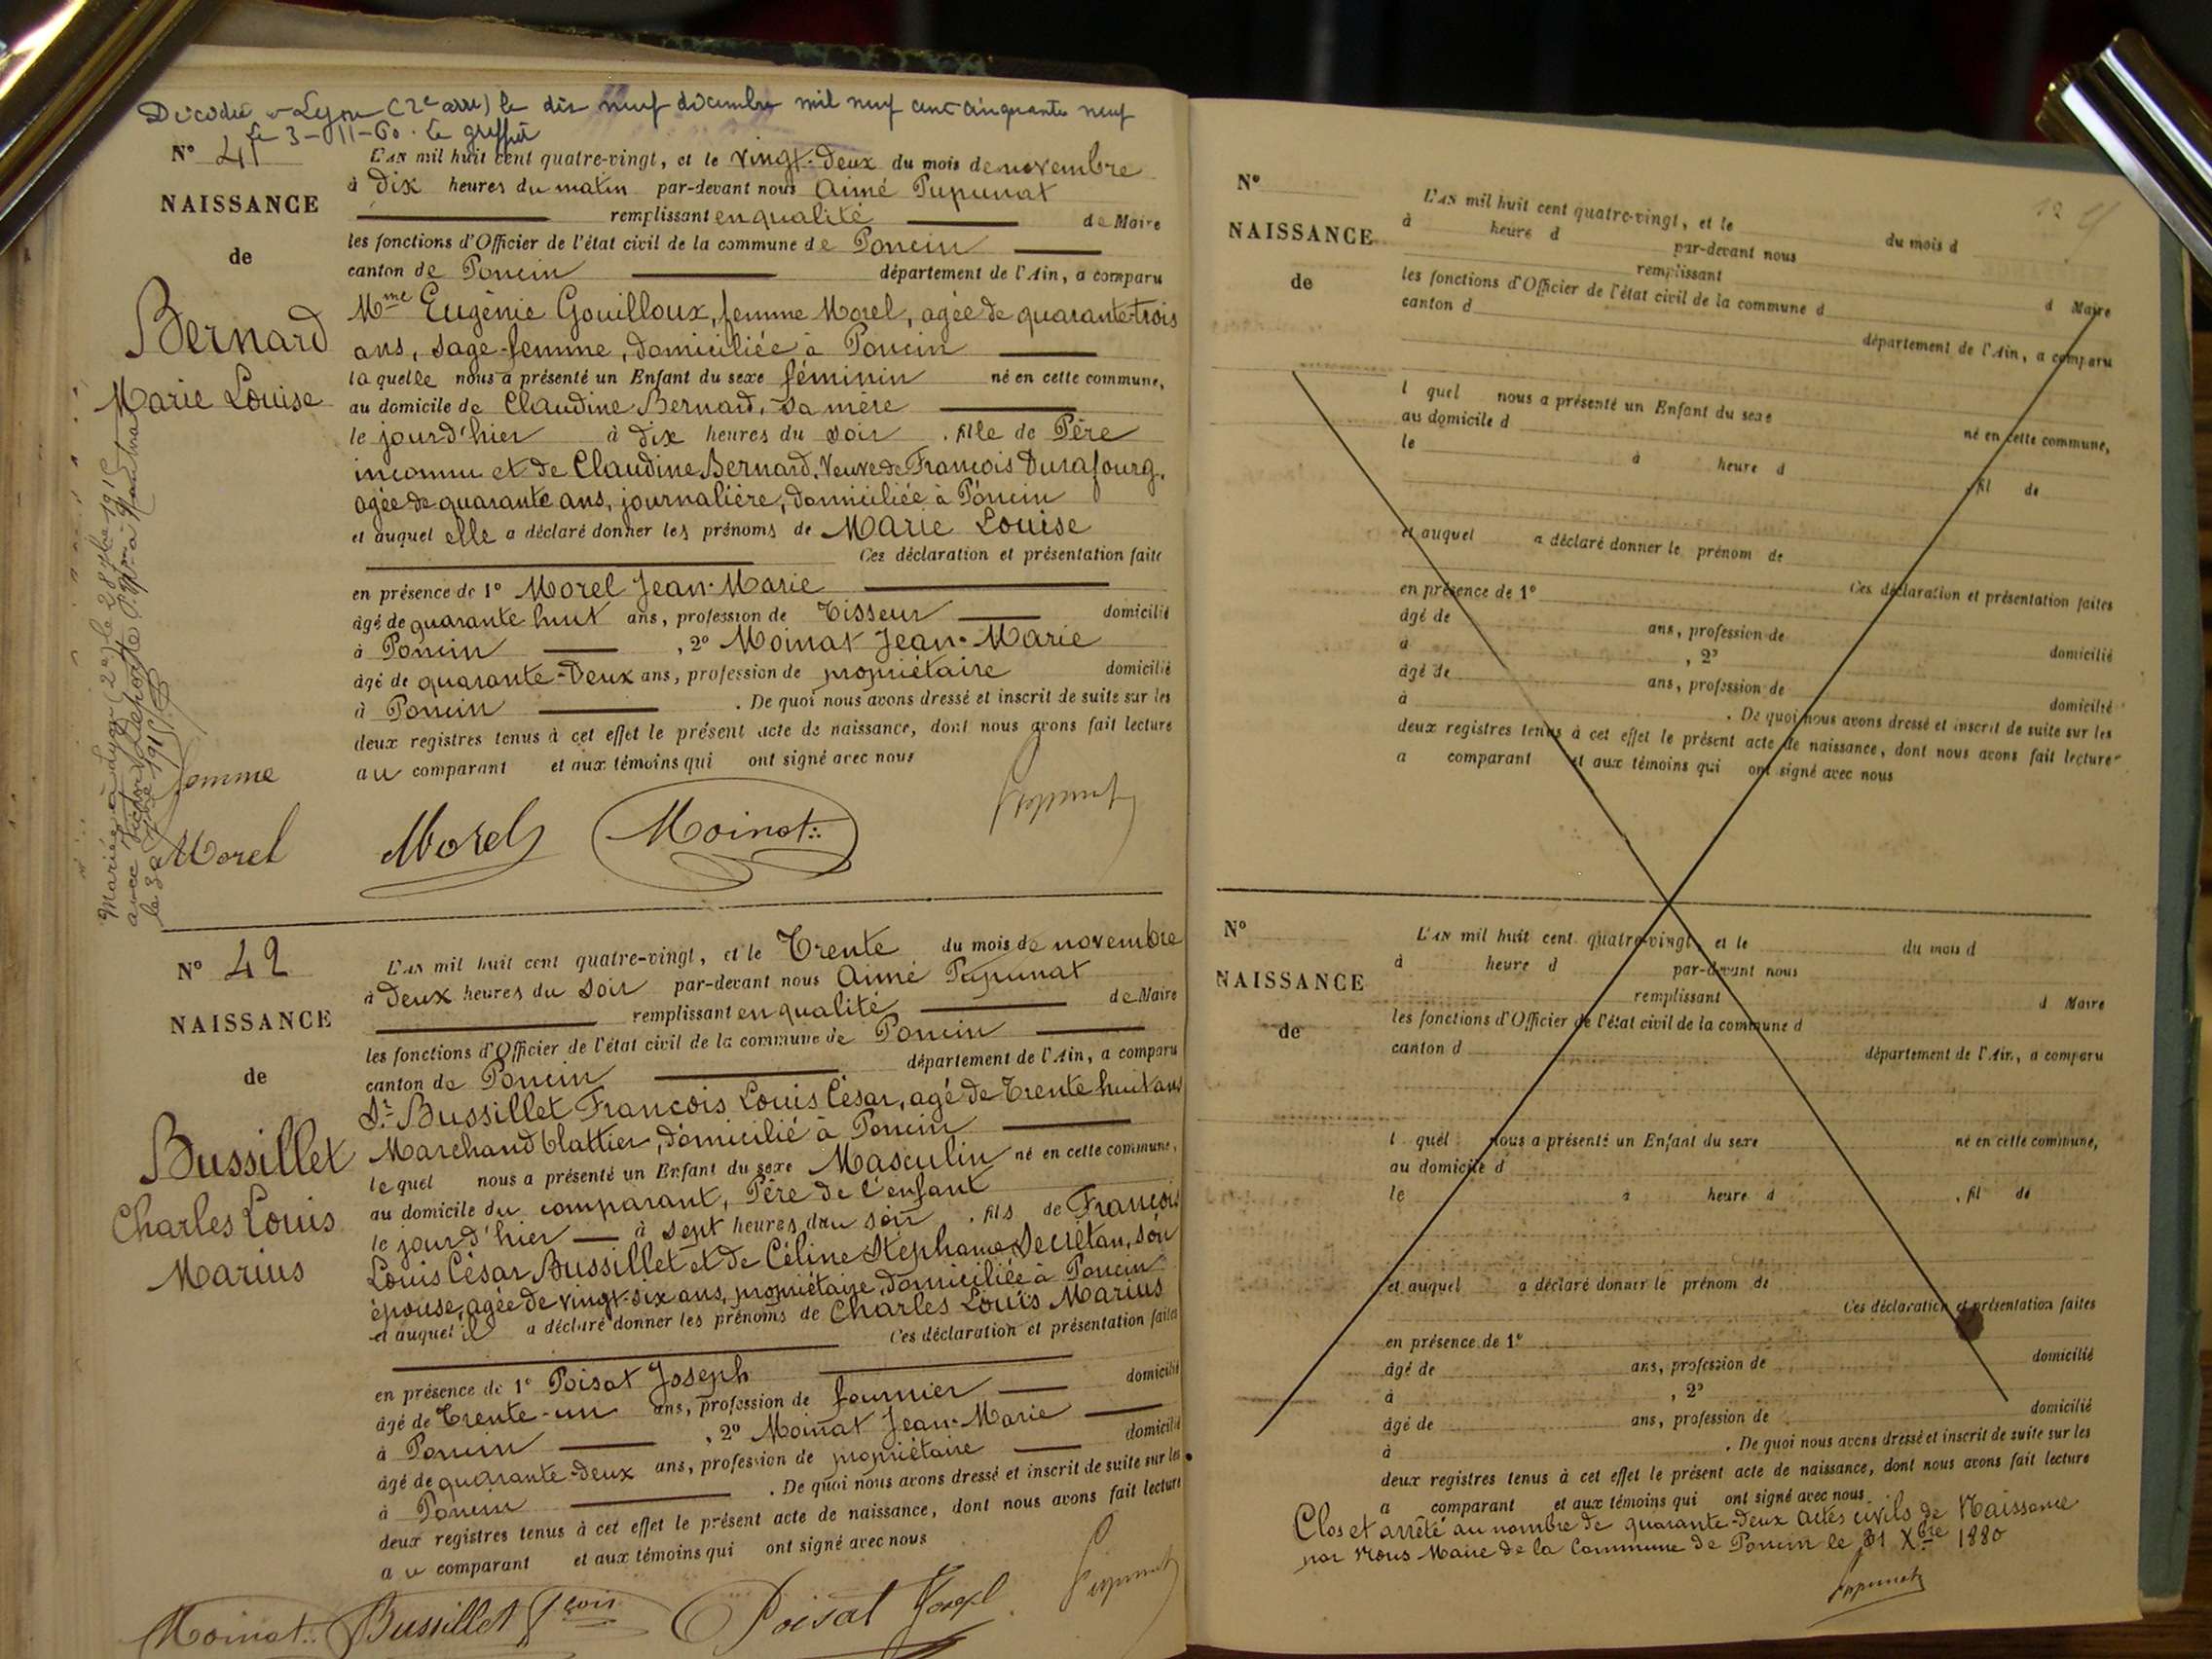 Décédée à Lyon (2e arrt) le dix neuf décembre mil neuf cent cinquante neuf
le 3-11-60. le greffier
N° 41
NAISSANCE
de
Bernard
Marie Louise
Mariée à Lyon (2e) le 28 7bre 1915
avec
le 30 7bre 1915
L'AN mil huit cent quatre-vingt, et le vingt-deux du mois de novembre
à dix heures du matin par-devant nous Aimé Pupunat
remplissant en qualité de Maire
les fonctions d'Officier de l'état civil de la commune de Poncin
canton de Poncin département de l'Ain, a comparu
Mme Eugénie Gouilloux, femme Morel, agée de quarante-trois
ans, sage-femme, domiciliée à Poncin
laquelle nous a présenté un Enfant du sexe féminin né en cette commune,
au domicile de Claudine Bernard, sa mère
le jour d'hier à dix heures du soir, fille de Père
inconnu et de Claudine Bernard, Veuve de François Durafourg,
agée de quarante ans, journalière, domiciliée à Poncin
et auquel elle a déclaré donner les prénoms de Marie Louise
Ces déclaration et présentation faite
en présence de 1° Morel Jean-Marie
âgé de quarante huit ans, profession de Tisseur domicilié
à Poncin, 2° Moinat Jean-Marie
âgé de quarante-deux ans, profession de propriétaire domicilié
à Poncin. De quoi nous avons dressé et inscrit de suite sur les
deux registres tenus à cet effet le présent acte de naissance, dont nous avons fait lecture
au comparant et aux témoins qui ont signé avec nous
femme
Morel
Morel Moinat Pupunat
N° 42
NAISSANCE
de
Bussillet
Charles Louis
Marius
L'AN mil huit cent quatre-vingt, et le Trente du mois de novembre
à deux heures du soir par-devant nous Aimé Pupunat
remplissant en qualité de Maire
les fonctions d'Officier de l'état civil de la commune de Poncin
canton de Poncin département de l'Ain, a comparu
Sr. Bussillet François Louis César, agé de Trente huit ans
Marchand blattier, domicilié à Poncin
lequel nous a présenté un Enfant du sexe Masculin né en cette commune,
au domicile du comparant, Père de l'enfant
le jour d'hier à sept heures du soir, fils de François
Louis César Bussillet et de Céline Stéphanie Secrétan, son
épouse, agée de vingt-six ans, propriétaire, domiciliée à Poncin
et auquel il a déclaré donner les prénoms de Charles Louis Marius
Ces déclaration et présentation faites
en présence de 1° Poisat Joseph
âgé de Trente-un ans, profession de fournier domicilié
à Poncin, 2° Moinat Jean-Marie
âgé de quarante-deux ans, profession de propriétaire domicilié
à Poncin. De quoi nous avons dressé et inscrit de suite sur les
deux registres tenus à cet effet le présent acte de naissance, dont nous avons fait lecture
au comparant et aux témoins qui ont signé avec nous
Moinat Bussillet Fçois Poisat Joseph Pupunat
N°
NAISSANCE
de
L'AN mil huit cent quatre-vingt, et le du mois d
à heure d par-devant nous
remplissant d Maire
les fonctions d'Officier de l'état civil de la commune d
canton d département de l'Ain, a comparu
l quel nous a présenté un Enfant du sexe né en cette commune,
au domicile d
le à heure d, fil de
et auquel a déclaré donner le prénom de
Ces déclaration et présentation faites
en présence de 1°
âgé de ans, profession de domicilié
à, 2°
âgé de ans, profession de domicilié
à. De quoi nous avons dressé et inscrit de suite sur les
deux registres tenus à cet effet le présent acte de naissance, dont nous avons fait lecture
a comparant et aux témoins qui ont signé avec nous
N°
NAISSANCE
de
L'AN mil huit cent quatre-vingt, et le du mois d
à heure d par-devant nous
remplissant d Maire
les fonctions d'Officier de l'état civil de la commune d
canton d département de l'Ain, a comparu
l quel nous a présenté un Enfant du sexe né en cette commune,
au domicile d
le à heure d, fil de
et auquel a déclaré donner le prénom de
Ces déclaration et présentation faites
en présence de 1°
âgé de ans, profession de domicilié
à, 2°
âgé de ans, profession de domicilié
à. De quoi nous avons dressé et inscrit de suite sur les
deux registres tenus à cet effet le présent acte de naissance, dont nous avons fait lecture
a comparant et aux témoins qui ont signé avec nous
Clos et arrêté au nombre de quarante-deux actes civils de Naissance
par Nous Maire de la Commune de Poncin le 31 Xbre 1880
Pupunat